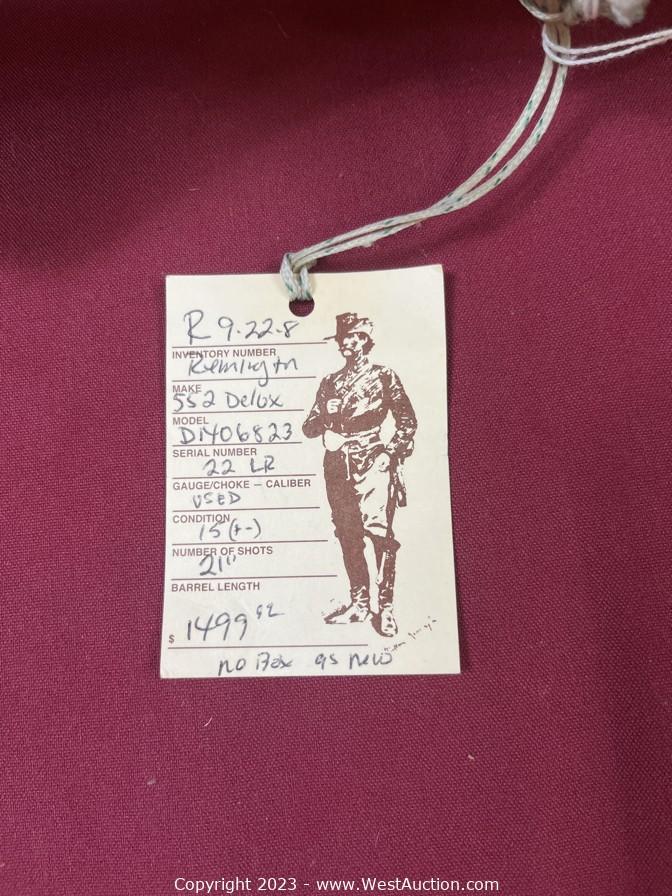 R 9-22-8
INVENTORY NUMBER
Remington
MAKE
552 Delux
MODEL
D1406823
SERIAL NUMBER
22 LR
GAUGE/CHOKE — CALIBER
USED
CONDITION
15 (+-)
NUMBER OF SHOTS
21"
BARREL LENGTH
$ 1499
no Box as new
Copyright 2023 - www.WestAuction.com